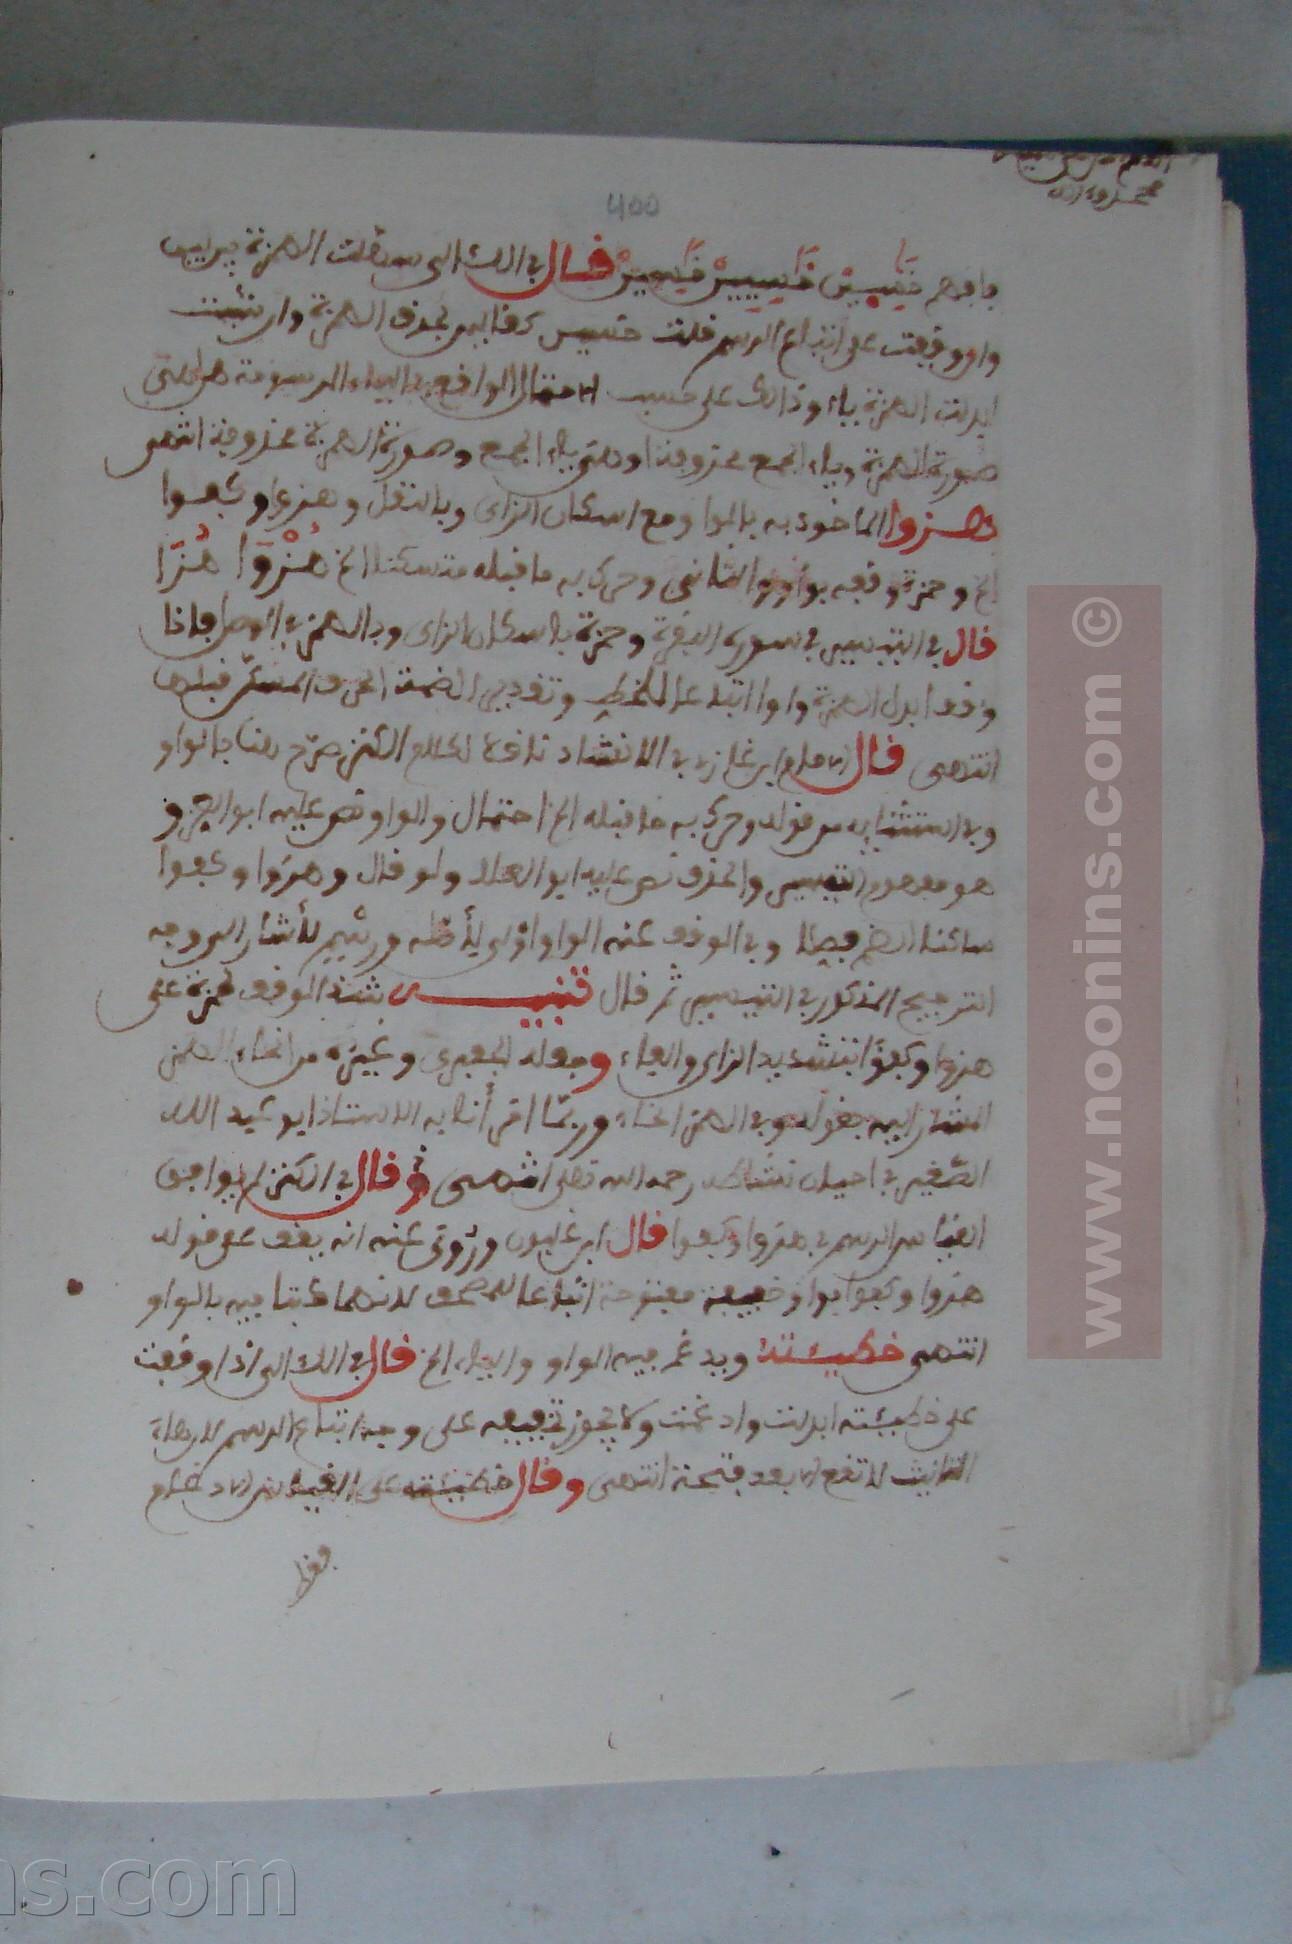 400
فافهم خسين خسيين خسين فـال في اللئالي سهلت الهمزة بين بين
وان وقفت على اتباع الرسم قلت خسين كفاليس بحذف الهمزة وان شئت
ابدلت الهمزة ياء وذالك على حسب احتمال الواقع في الياء المرسومة هل هي
صورة الهمزة وياء الجمع محذوفة او هي ياء الجمع وصورة الهمزة محذوفة انتهى
هـزوا الماخوذ به بالواو مع اسكان الزاى وبالنقل وهزءا وكفوا
الخ وحمزة وقفه بواو والثاني وحرك به ما قبله متسكنا الخ هُزْوَا هُزَا
قال في التيسير في سورة البقرة وحمزة باسكان الزاى وبالهمز في الوصل فاذا
وقف ابدل الهمزة واوا اتباعا للخط وتقدير الضمة الحرف المسكن قبلها
انتهى قال الامام ابن غازي في الانشاد ناقلا لكلام الكنز صرح هنا بالواو
وفي استثنايه من قوله وحرك به ما قبله الخ احتمال والواو نص عليه ابو العز و
هو مفهوم التيسير والحذف نص عليه ابو العلاء ولو قال وهزوا وكفوا
ساكنا الضم فيصلا وفي الوقف عنه الواو اولى لأصله ورسم لأشار الى وجه
الترجيح المذكور في التيسير ثم قال تنبيـــه شذ الوقف لحمزة على
هزوا وكفوا بتشديد الزاى والفاء وجعله الجعبرى وغيره من انحاء الهمز
المشار اليه بقوله وفي الهمز انحاء وربما اقرأنا به الاستاذ ابو عبد الله
الصغير في احيان نشاطه رحمه الله تعلى انتهى وقال في الكنز لم يوافق
القياس الرسم في هزوا وكفوا قال ابن غلبون وروى عنه انه يقف على قوله
هزوا وكفوا بواو خفيفة مفتوحة اتباعا للمصحف لانهما كتبا فيه بالواو
انتهى خطيئته ويدغم فيه الواو والياء الخ قال في اللئالي اذا وقفت
على خطيئته ابدلت وادغمت ولا يجوز تخفيفه على وجه اتباع الرسم لان هاء
التانيث لا تقع الا بعد فتحة انتهى وقال خطيئته على القياس الادغام
فقط
www.noonins.com ©
ns.com